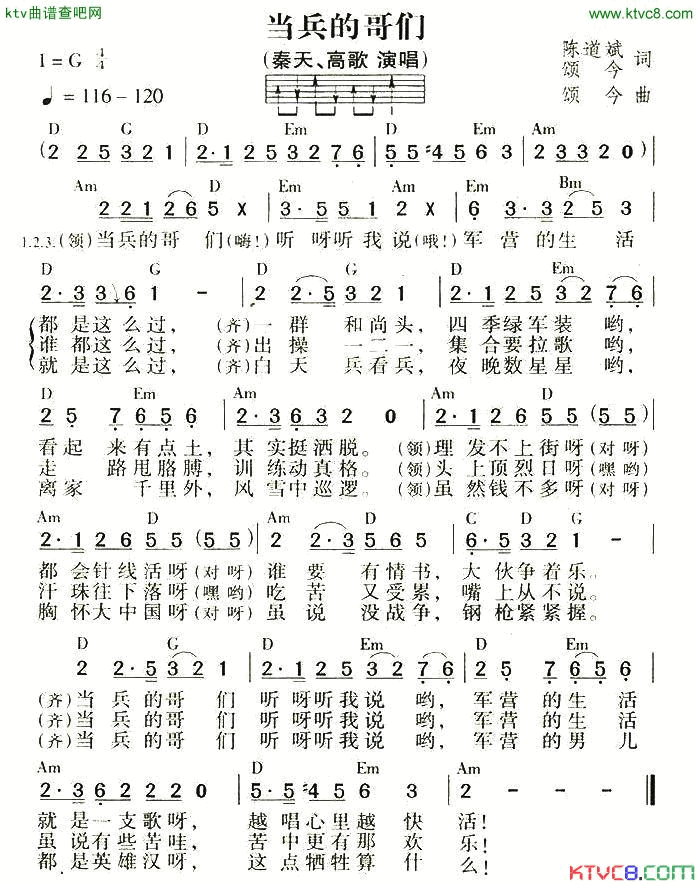 ktv曲谱查吧网
www.ktvc8.com
当兵的哥们
(秦天、高歌 演唱)
1=G 4/4
♩=116－120
陈道斌 词
颂今
颂今 曲
D G D Em D Em Am
(2 2 5 3 2 1 | 2·1 2 5 3 2 7 6 | 5·5 5 #4 5 6 3 | 2 3 3 2 0)
Am D Em Am Em Bm
2 2 1 2 6 5 X | 3·5 5 1 2 X | 6 3·3 2 5 3
1.2.3.(领)当兵的哥们(嗨!)听呀听我说(哦!)军营的生活
D G D Em
2·3 3 6 1 － | 2 2·5 3 2 1 | 2·1 2 5 3 2 7 6
都是这么过，(齐)一群和尚头，四季绿军装哟，
谁都这么过，(齐)出操一二一，集合要拉歌哟，
就是这么过，(齐)白天兵看兵，夜晚数星星哟，
D Em Am Am D
2 5 7 6 5 6 | 2·3 6 3 2 0 | 2·1 2 6 5 5 (5 5)
看起来有点土，其实挺洒脱。(领)理发不上街呀(对呀)
走路甩胳膊，训练动真格。(领)头上顶烈日呀(嘿哟)
离家千里外，风雪中巡逻。(领)虽然钱不多呀(对呀)
Am D Am D C D G
2·1 2 6 5 5 (5 5) | 2 2·3 5 6 5 | 6·5 3 2 1 －
都会针线活呀(对呀)谁要有情书，大伙争着乐。
汗珠往下落呀(嘿哟)吃苦又受累，嘴上从不说。
胸怀大中国呀(对呀)虽说没战争，钢枪紧紧握。
D G D Em D Em
2 2·5 3 2 1 | 2·1 2 5 3 2 7 6 | 2 5 7 6 5 6
(齐)当兵的哥们听呀听我说哟，军营的生活
(齐)当兵的哥们听呀听我说哟，军营的生活
(齐)当兵的哥们听呀听我说哟，军营的男儿
Am D Em Am
2·3 6 2 2 2 0 | 5·5 #4 5 6 3 | 2 － － －
就是一支歌呀，越唱心里越快活!
虽说有些苦哇，苦中更有那欢乐!
都是英雄汉呀，这点牺牲算什么!
KTVC8.com